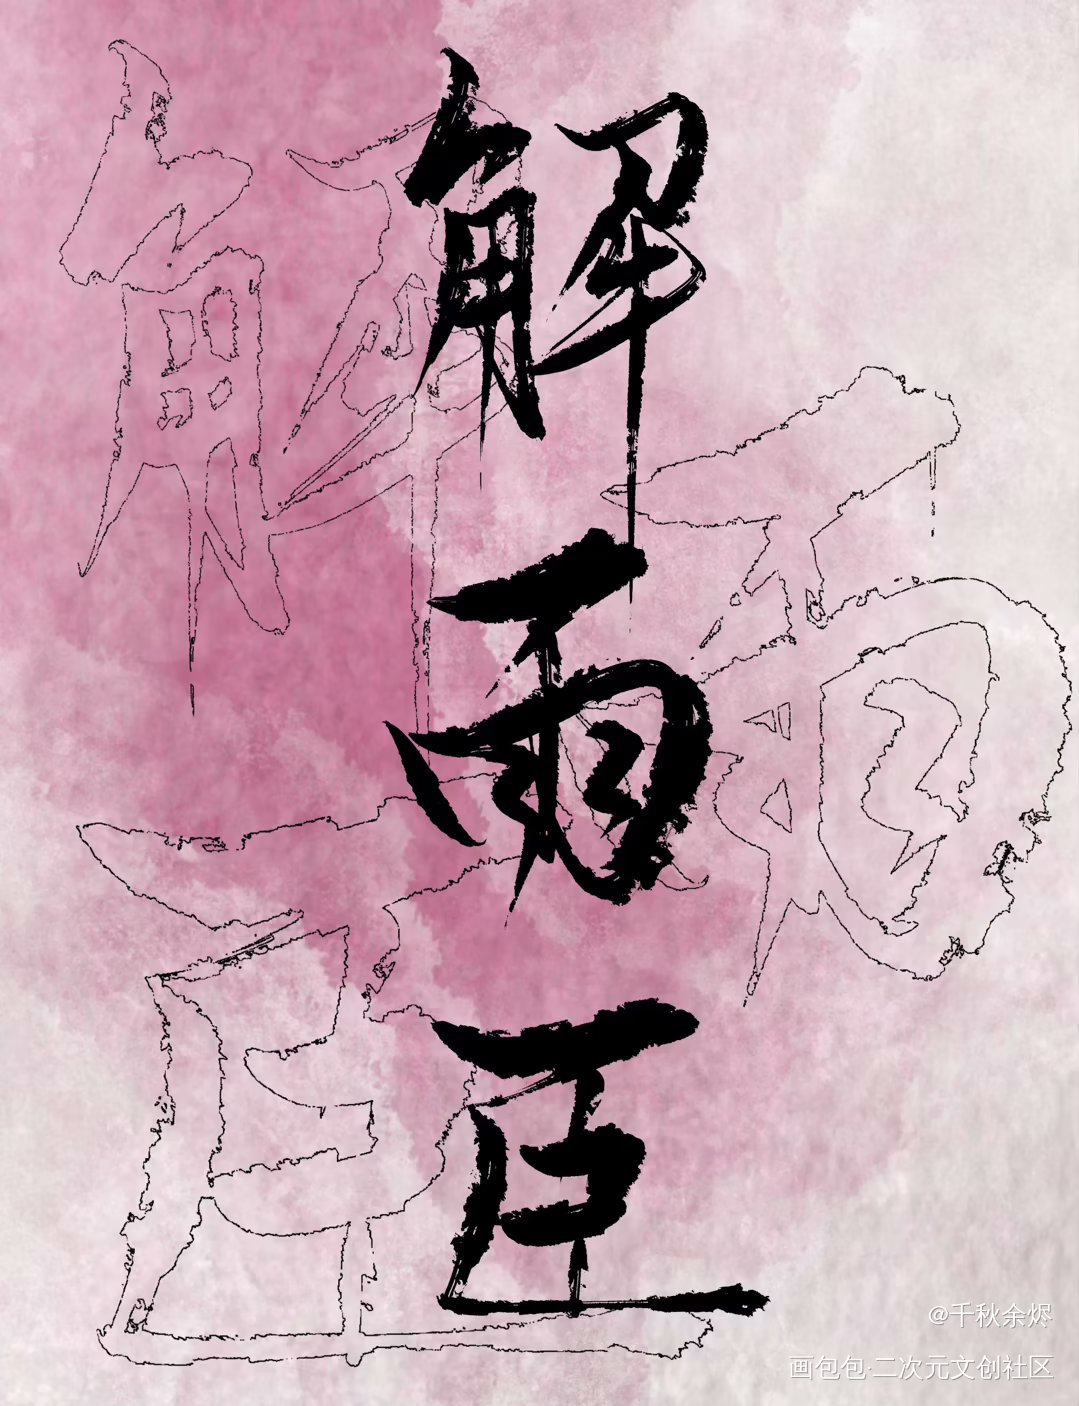 解雨臣
@千秋余烬
画包包·二次元文创社区